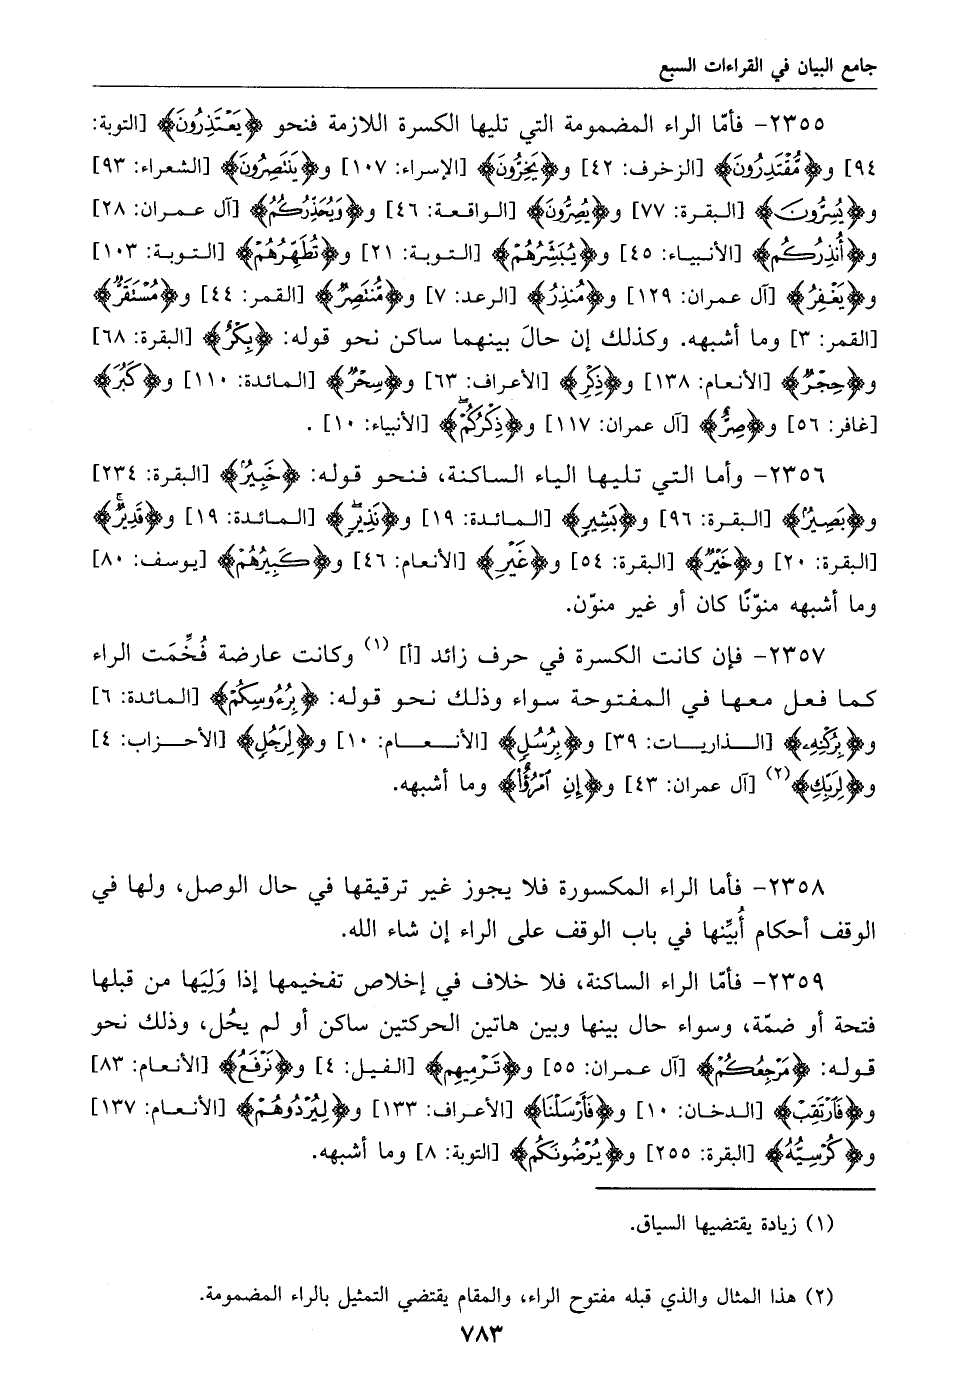 جامع البيان في القراءات السبع
٢٣٥٥- فأمّا الراء المضمومة التي تليها الكسرة اللازمة فنحو ﴿يَعْتَذِرُونَ﴾ [التوبة:
٩٤] و﴿مُّقْتَدِرُونَ﴾ [الزخرف: ٤٢] و﴿يَخِرُّونَ﴾ [الإسراء: ١٠٧] و﴿يَنْتَصِرُونَ﴾ [الشعراء: ٩٣]
و﴿يُسِرُّونَ﴾ [البقرة: ٧٧] و﴿يُصِرُّونَ﴾ [الواقعة: ٤٦] و﴿وَيُحَذِّرُكُمُ﴾ [آل عمران: ٢٨]
و﴿أُنذِرُكُم﴾ [الأنبياء: ٤٥] و﴿يُبَشِّرُهُمْ﴾ [التوبة: ٢١] و﴿تُطَهِّرُهُمْ﴾ [التوبة: ١٠٣]
و﴿يَغْفِرُ﴾ [آل عمران: ١٢٩] و﴿مُنذِرٌ﴾ [الرعد: ٧] و﴿مُّنتَصِرٌ﴾ [القمر: ٤٤] و﴿مُسْتَقِرٌّ﴾
[القمر: ٣] وما أشبهه. وكذلك إن حالَ بينهما ساكن نحو قوله: ﴿بِكْرٌ﴾ [البقرة: ٦٨]
و﴿حِجْرٌ﴾ [الأنعام: ١٣٨] و﴿ذِكْرٌ﴾ [الأعراف: ٦٣] و﴿سِحْرٌ﴾ [المائدة: ١١٠] و﴿كِبْرٌ﴾
[غافر: ٥٦] و﴿صِرٌّ﴾ [آل عمران: ١١٧] و﴿ذِكْرُكُمْ﴾ [الأنبياء: ١٠] .
٢٣٥٦- وأما التي تليها الياء الساكنة، فنحو قوله: ﴿خَبِيرٌ﴾ [البقرة: ٢٣٤]
و﴿بَصِيرٌ﴾ [البقرة: ٩٦] و﴿بَشِيرٍ﴾ [المائدة: ١٩] و﴿نَذِيرٍ﴾ [المائدة: ١٩] و﴿قَدِيرٌ﴾
[البقرة: ٢٠] و﴿خَيْرٌ﴾ [البقرة: ٥٤] و﴿غَيْرِ﴾ [الأنعام: ٤٦] و﴿كَبِيرُهُمْ﴾ [يوسف: ٨٠]
وما أشبهه منوّنًا كان أو غير منوّن.
٢٣٥٧- فإن كانت الكسرة في حرف زائد [أ] (١) وكانت عارضة فُخِّمَت الراء
كما فعل معها في المفتوحة سواء وذلك نحو قوله: ﴿بِرُءُوسِكُمْ﴾ [المائدة: ٦]
و﴿بِرُكْنِهِۦ﴾ [الذاريات: ٣٩] و﴿بِرُسُلٍ﴾ [الأنعام: ١٠] و﴿لِرَجُلٍ﴾ [الأحزاب: ٤]
و﴿لِرَبِّكِ﴾(٢) [آل عمران: ٤٣] و﴿إِنِ ٱمْرُؤٌا﴾ وما أشبهه.
٢٣٥٨- فأما الراء المكسورة فلا يجوز غير ترقيقها في حال الوصل، ولها في
الوقف أحكام أُبيِّنها في باب الوقف على الراء إن شاء الله.
٢٣٥٩- فأمّا الراء الساكنة، فلا خلاف في إخلاص تفخيمها إذا وَلِيَها من قبلها
فتحة أو ضمّة، وسواء حال بينها وبين هاتين الحركتين ساكن أو لم يحُل، وذلك نحو
قوله: ﴿مَرْجِعُكُمْ﴾ [آل عمران: ٥٥] و﴿تَرْمِيهِم﴾ [الفيل: ٤] و﴿نَرْفَعُ﴾ [الأنعام: ٨٣]
و﴿فَٱرْتَقِبْ﴾ [الدخان: ١٠] و﴿فَأَرْسَلْنَا﴾ [الأعراف: ١٣٣] و﴿لِيُرْدُوهُمْ﴾ [الأنعام: ١٣٧]
و﴿كُرْسِيُّهُ﴾ [البقرة: ٢٥٥] و﴿يُرْضُونَكُم﴾ [التوبة: ٨] وما أشبهه.
(١) زيادة يقتضيها السياق.
(٢) هذا المثال والذي قبله مفتوح الراء، والمقام يقتضي التمثيل بالراء المضمومة.
٧٨٣